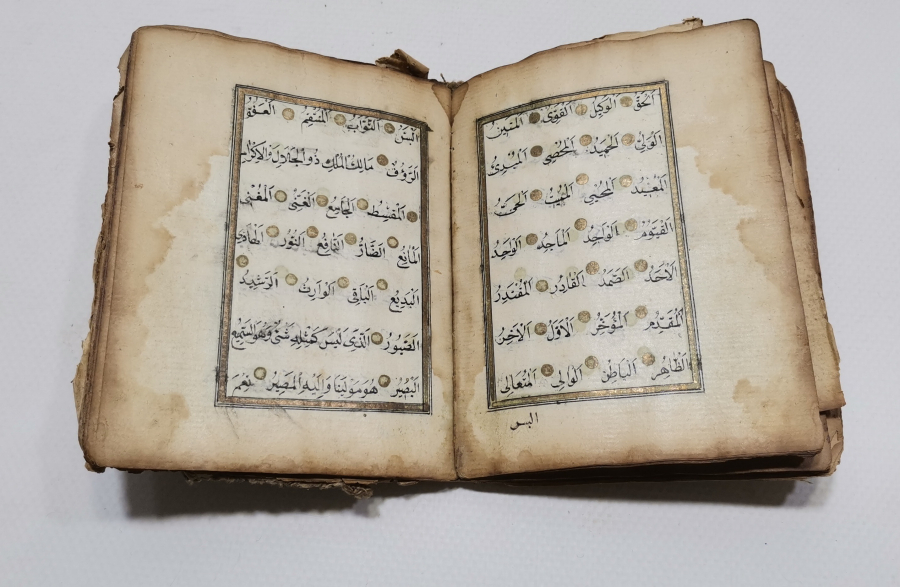 اَلْحَقُّ اَلْوَكِيلُ اَلْقَوِىُّ اَلْمَتِينُ
اَلْوَلِىُّ اَلْحَمِيدُ اَلْمُحْصِى اَلْمُبْدِئُ
اَلْمُعِيدُ اَلْمُحْيِى اَلْمُمِيتُ اَلْحَىُّ
اَلْقَيُّومُ اَلْوَاجِدُ اَلْمَاجِدُ اَلْوَاحِدُ
اَلْاَحَدُ اَلصَّمَدُ اَلْقَادِرُ اَلْمُقْتَدِرُ
اَلْمُقَدِّمُ اَلْمُؤَخِّرُ اَلْاَوَّلُ اَلْاٰخِرُ
اَلظَّاهِرُ اَلْبَاطِنُ اَلْوَالِى اَلْمُتَعَالِى
البر
اَلْبَرُّ اَلتَّوَّابُ اَلْمُنْتَقِمُ اَلْعَفُوُّ
اَلرَّؤُفُ مَالِكُ الْمُلْكِ ذُو الْجَلَالِ وَالْاِكْرَامِ
اَلْمُقْسِطُ اَلْجَامِعُ اَلْغَنِىُّ اَلْمُغْنِى
اَلْمَانِعُ اَلضَّارُّ اَلنَّافِعُ اَلنُّورُ اَلْهَادِى
اَلْبَدِيعُ اَلْبَاقِى اَلْوَارِثُ اَلرَّشِيدُ
اَلصَّبُورُ اَلَّذِى لَيْسَ كَمِثْلِهِ شَىْءٌ وَهُوَ السَّمِيعُ
اَلْبَصِيرُ هُوَ مَوْلٰينَا وَاِلَيْهِ الْمَصِيرُ نِعْمَ